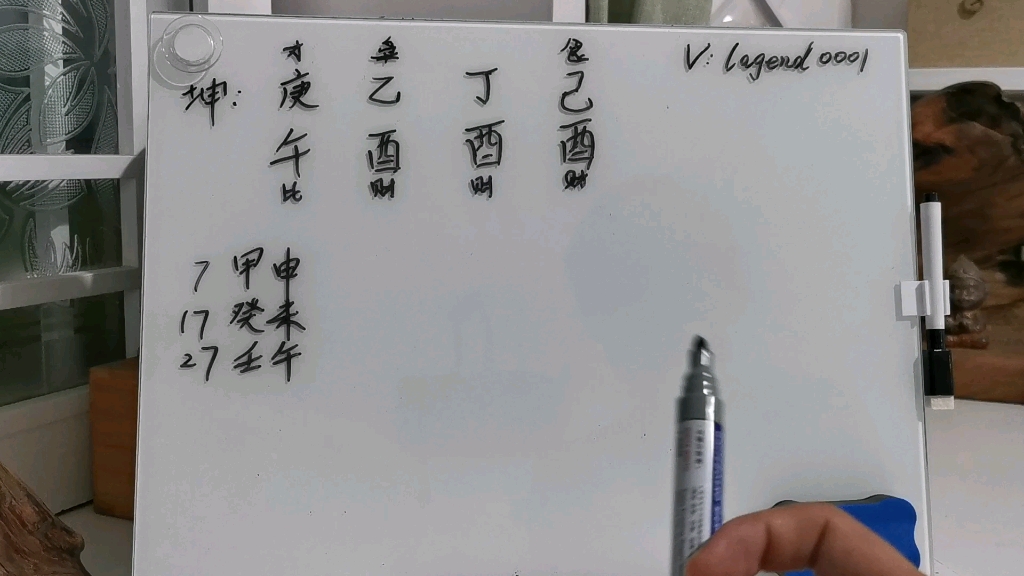 才 枭 食
坤: 庚 乙 丁 己
午 酉 酉 酉
比 财 财 财
V: lagend0001
7 甲申
17 癸未
27 壬午